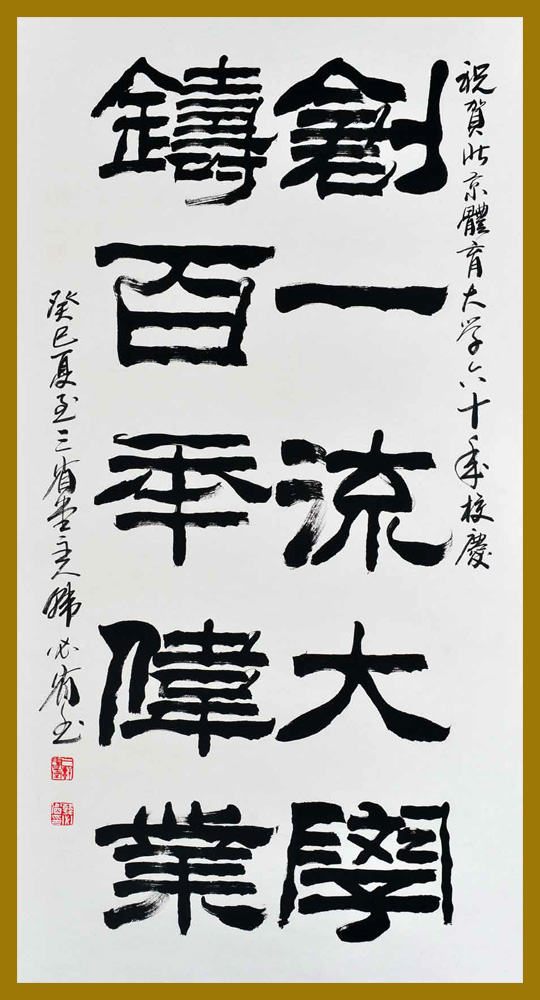 祝賀北京體育大学六十年校慶
創一流大學
鑄百年偉業
癸巳夏至三省堂主人韩必省书